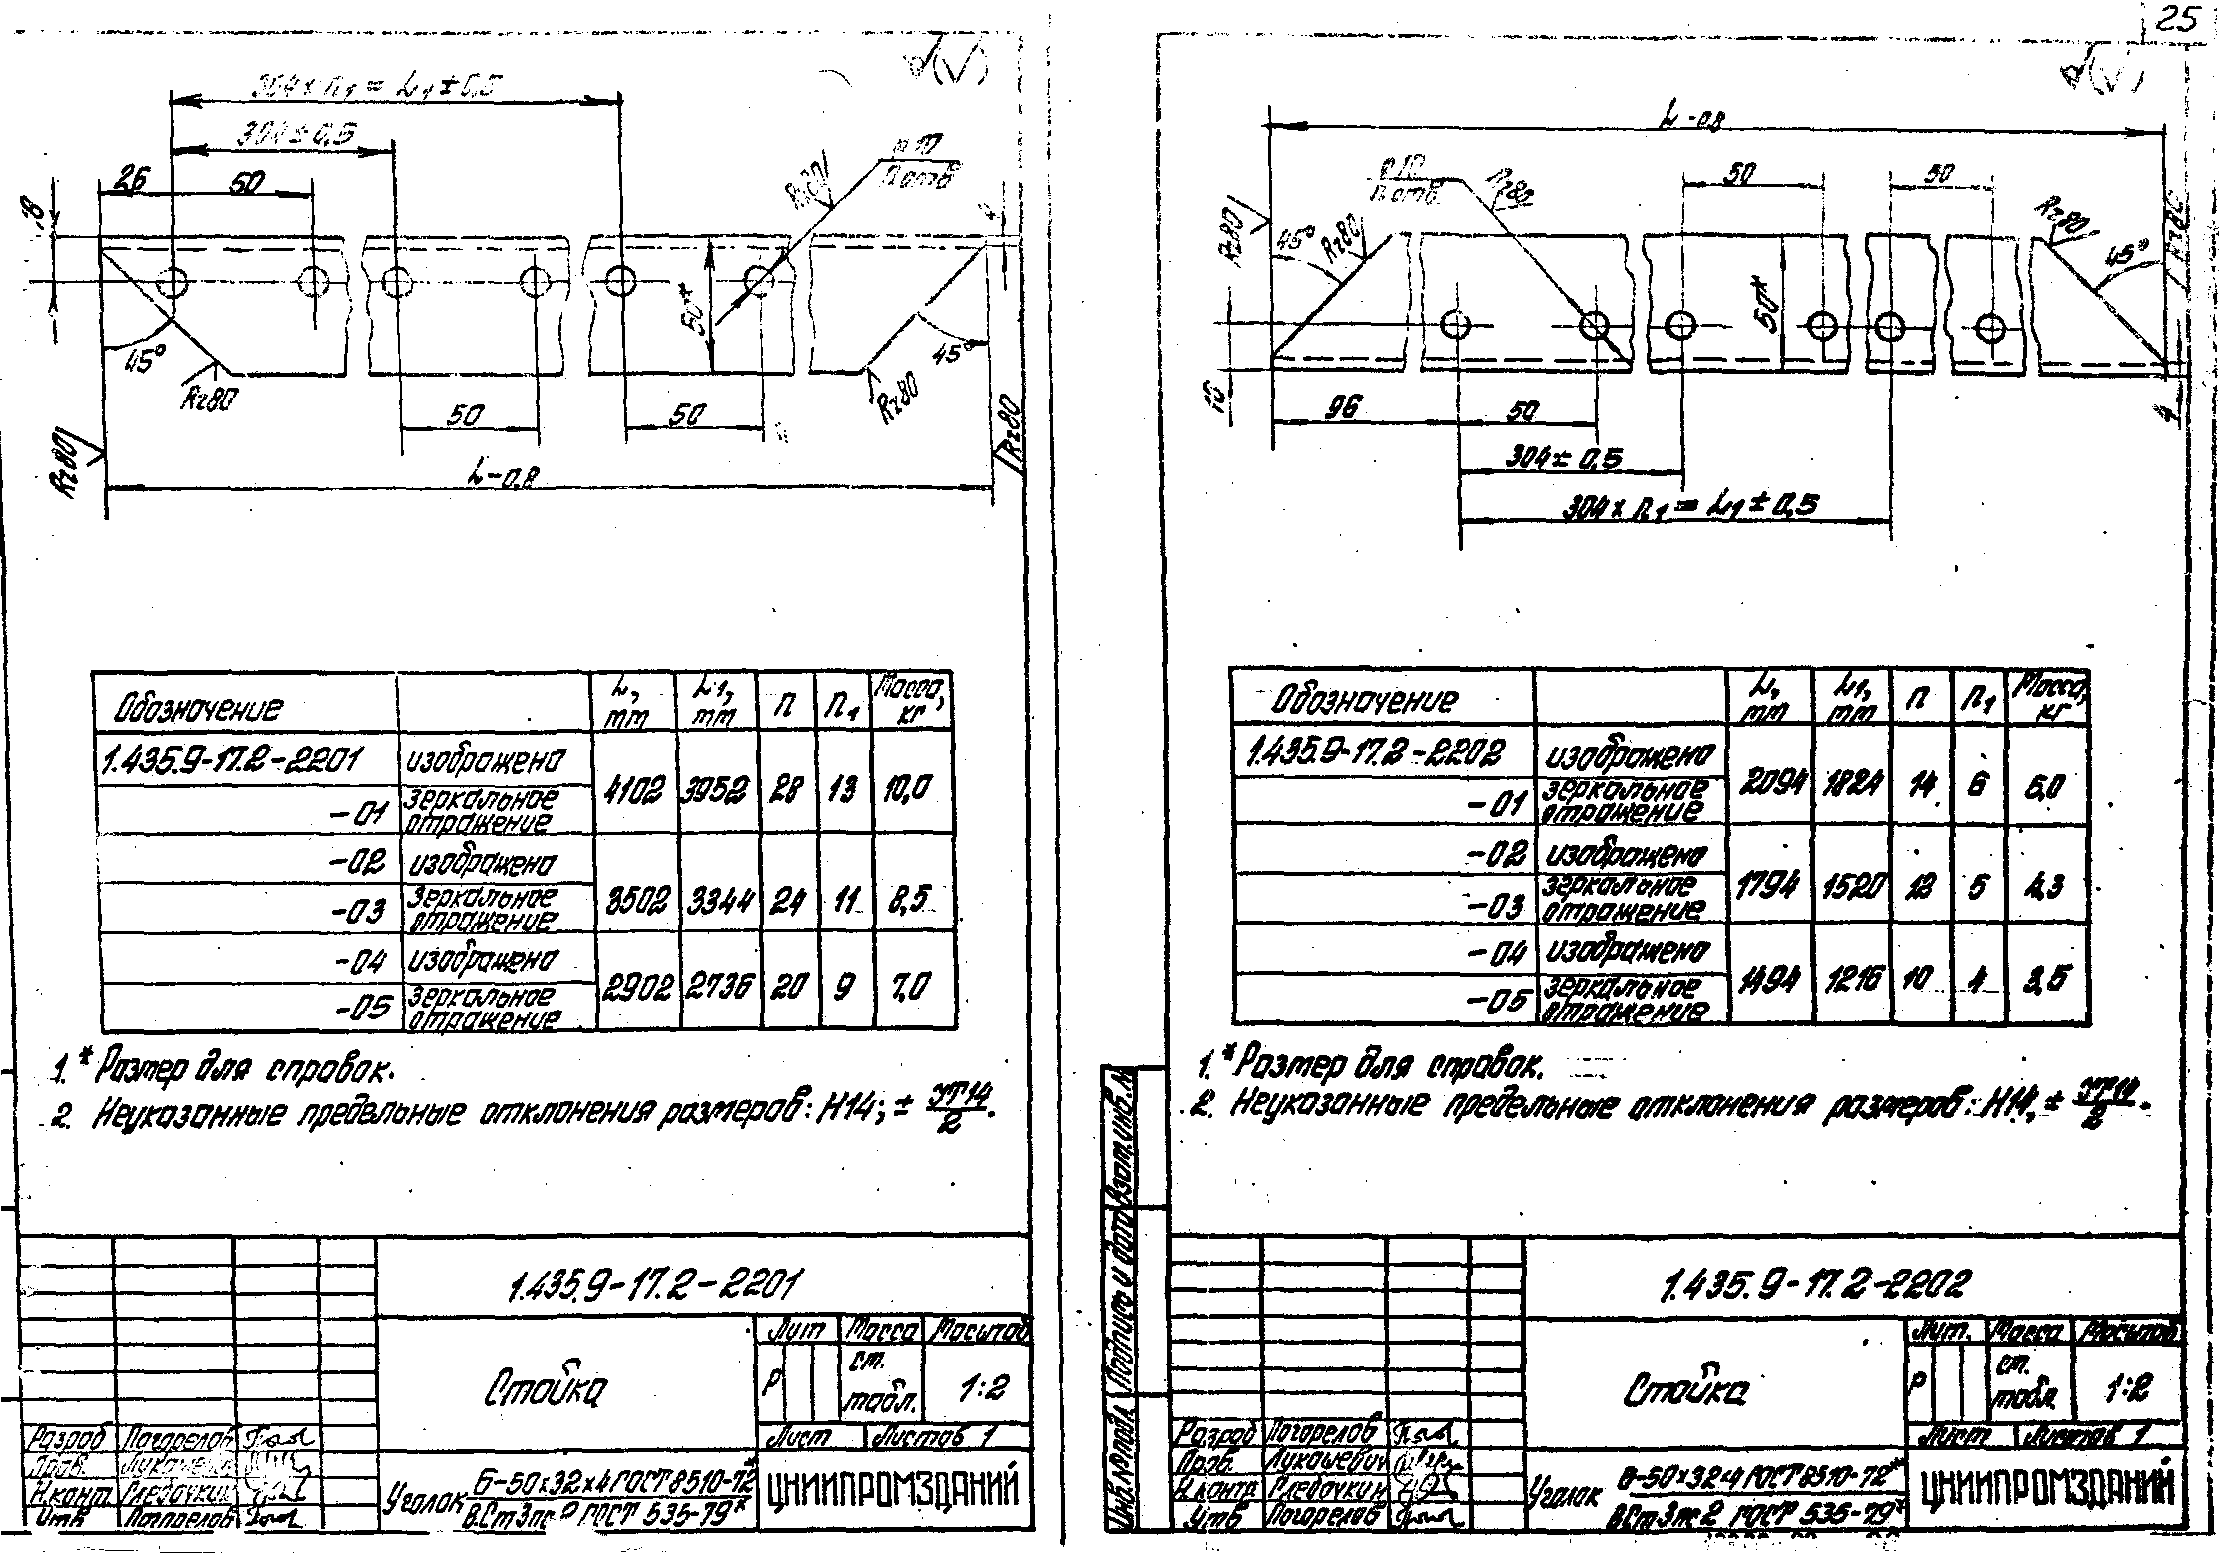 25
304 x n₁ = L₁ ± 0,5
304 ± 0,5
26
50
18
Rz80
п отв
4
50*
45°
Rz80
45°
Rz80
50
50
Rz80
Rz80
L-0,8
Обозначение L, mm L1, mm n n₁ Масса, кг
1.435.9-17.2-2201 изображено 4102 3952 28 13 10,0
-01 зеркальное отражение
-02 изображено 3502 3344 24 11 8,5
-03 зеркальное отражение
-04 изображено 2902 2736 20 9 7,0
-05 зеркальное отражение
1.* Размер для справок.
2. Неуказанные предельные отклонения размеров: H14; ± JT14/2.
1.435.9-17.2-2201
Стойка
Лит Масса Масштаб
Р ст. табл. 1:2
Лист Листов 1
Разраб Погорелов
Пров.
Н.контр
Утв Погорелов
Уголок Б-50x32x4 ГОСТ 8510-72*
ГОСТ 535-79*
ЦНИИПРОМЗДАНИЙ
L-0,8
50
50
п отв.
Rz80
Rz80
45°
Rz80
Rz80
45°
Rz80
50*
4
96
50
304 ± 0,5
304 x n₁ = L₁ ± 0,5
Обозначение L, mm L1, mm n n₁ Масса, кг
1.435.9-17.2-2202 изображено 2094 1824 14 6 5,0
-01 зеркальное отражение
-02 изображено 1794 1520 12 5 4,3
-03 зеркальное отражение
-04 изображено 1494 1216 10 4 3,5
-05 зеркальное отражение
1.* Размер для справок.
2. Неуказанные предельные отклонения размеров: H14, ± JT14/2.
Взам.инв.№
Подпись и дата
Инв.№подл.
1.435.9-17.2-2202
Стойка
Лит. Масса Масштаб
Р ст. табл. 1:2
Лист Листов 1
Разраб Погорелов
Пров. Лукашевич
Н.контр
Утв Погорелов
Уголок Б-50x32x4 ГОСТ 8510-72*
ГОСТ 535-79*
ЦНИИПРОМЗДАНИЙ